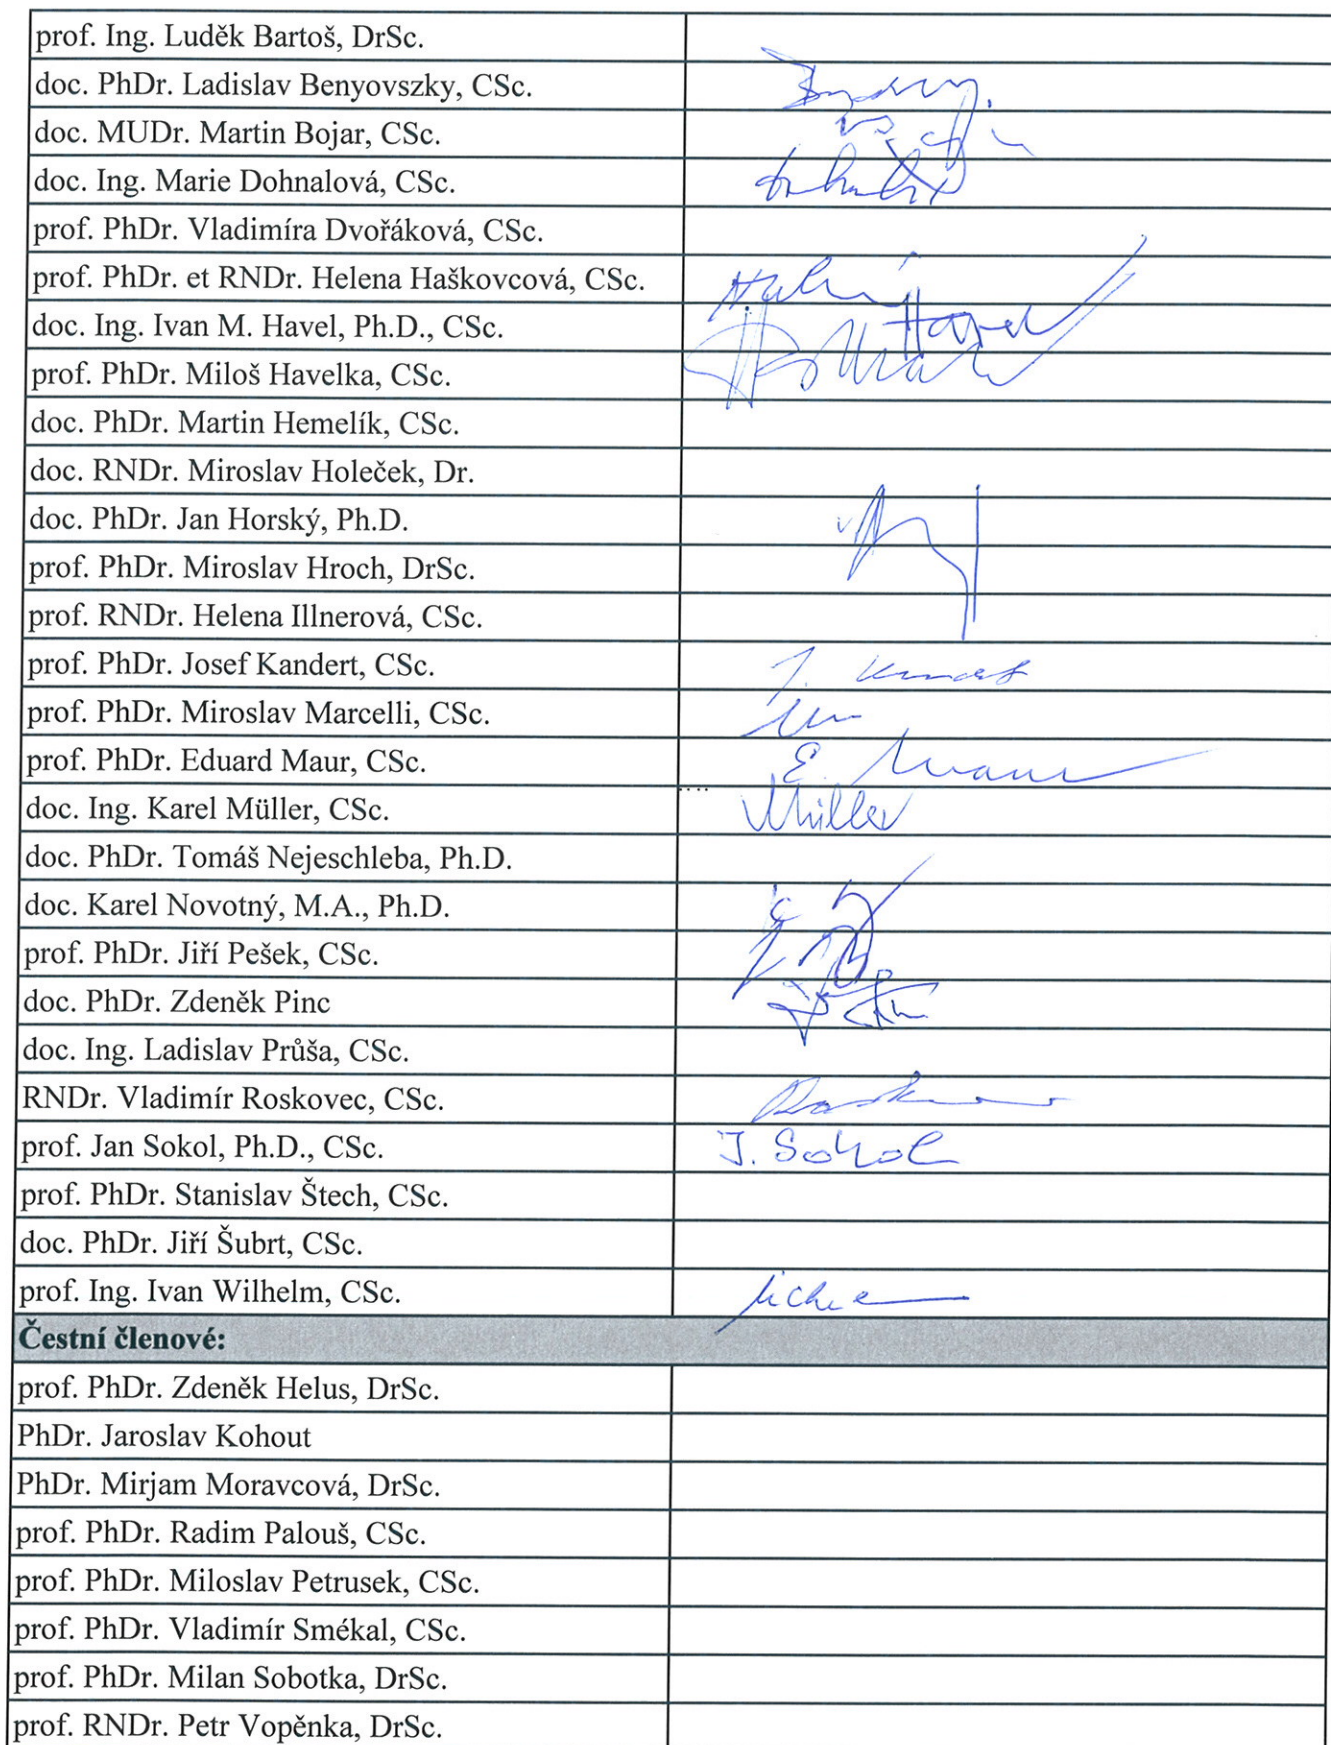 prof. Ing. Luděk Bartoš, DrSc.
doc. PhDr. Ladislav Benyovszky, CSc.
doc. MUDr. Martin Bojar, CSc.
doc. Ing. Marie Dohnalová, CSc.
prof. PhDr. Vladimíra Dvořáková, CSc.
prof. PhDr. et RNDr. Helena Haškovcová, CSc.
doc. Ing. Ivan M. Havel, Ph.D., CSc. Havel
prof. PhDr. Miloš Havelka, CSc.
doc. PhDr. Martin Hemelík, CSc.
doc. RNDr. Miroslav Holeček, Dr.
doc. PhDr. Jan Horský, Ph.D.
prof. PhDr. Miroslav Hroch, DrSc.
prof. RNDr. Helena Illnerová, CSc.
prof. PhDr. Josef Kandert, CSc.
prof. PhDr. Miroslav Marcelli, CSc.
prof. PhDr. Eduard Maur, CSc. E. Maur
doc. Ing. Karel Müller, CSc. Müller
doc. PhDr. Tomáš Nejeschleba, Ph.D.
doc. Karel Novotný, M.A., Ph.D.
prof. PhDr. Jiří Pešek, CSc.
doc. PhDr. Zdeněk Pinc
doc. Ing. Ladislav Průša, CSc.
RNDr. Vladimír Roskovec, CSc.
prof. Jan Sokol, Ph.D., CSc. J. Sokol
prof. PhDr. Stanislav Štech, CSc.
doc. PhDr. Jiří Šubrt, CSc.
prof. Ing. Ivan Wilhelm, CSc.
Čestní členové:
prof. PhDr. Zdeněk Helus, DrSc.
PhDr. Jaroslav Kohout
PhDr. Mirjam Moravcová, DrSc.
prof. PhDr. Radim Palouš, CSc.
prof. PhDr. Miloslav Petrusek, CSc.
prof. PhDr. Vladimír Smékal, CSc.
prof. PhDr. Milan Sobotka, DrSc.
prof. RNDr. Petr Vopěnka, DrSc.